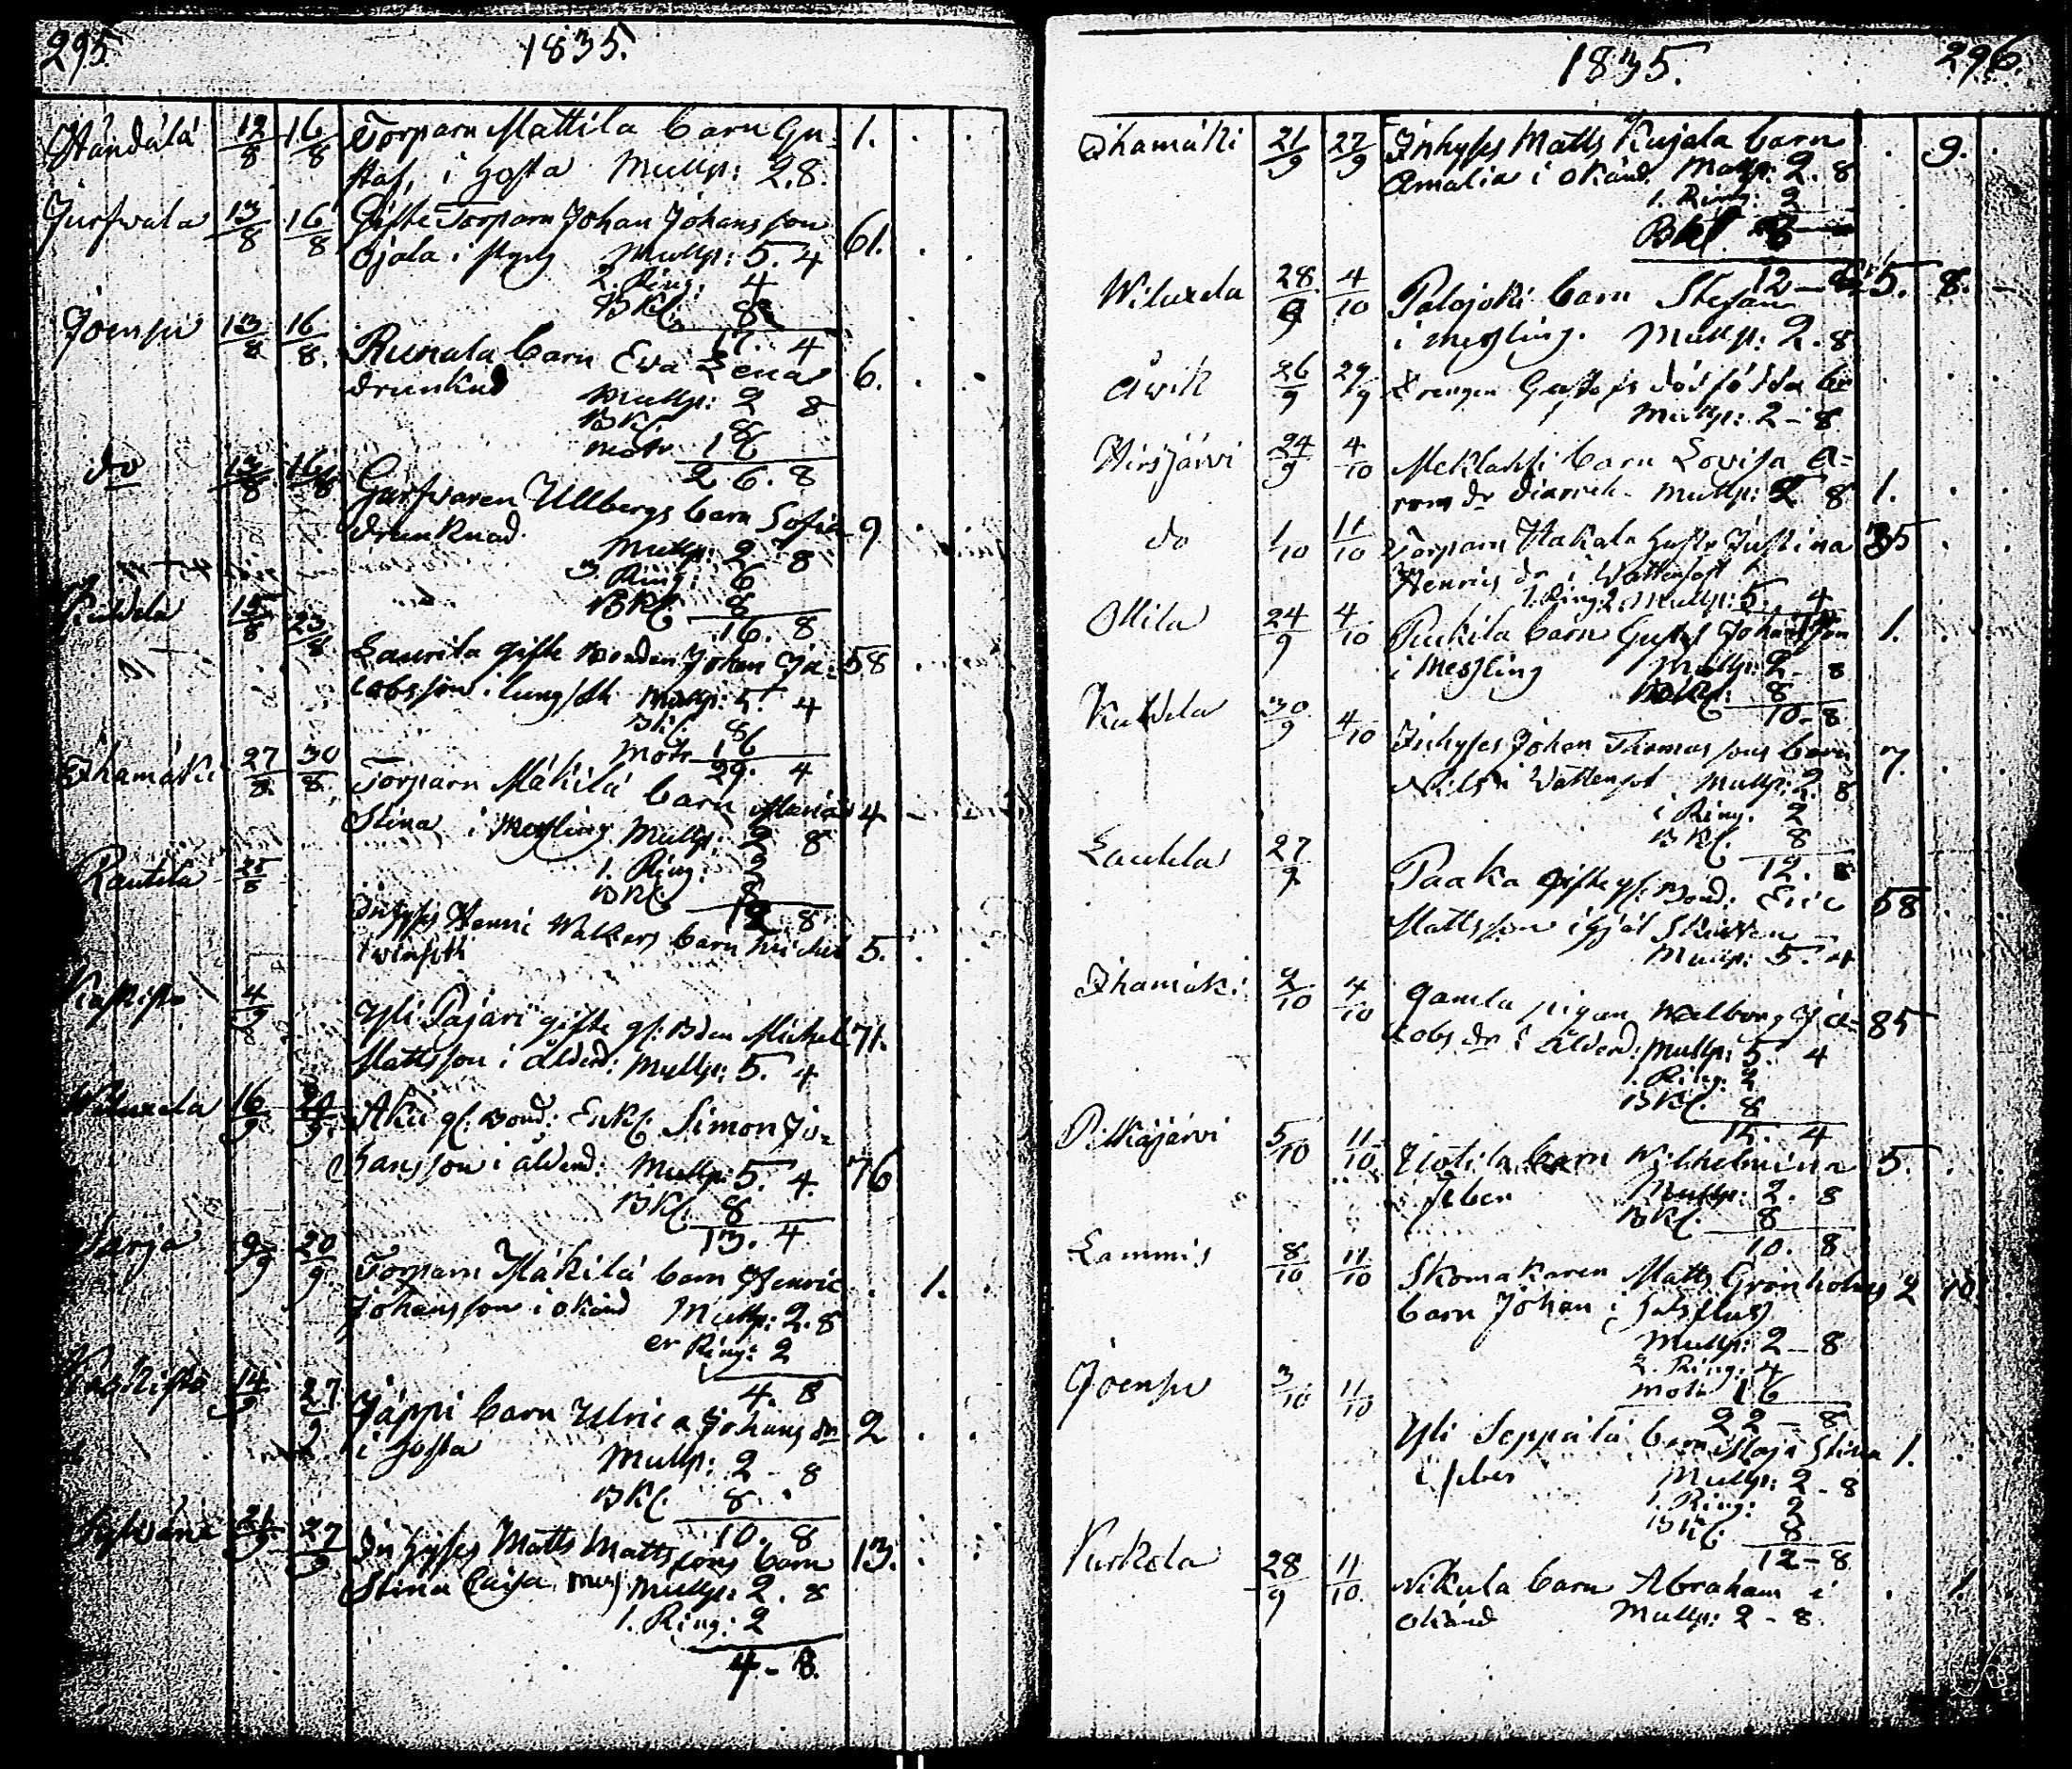 295. 1835.
Händälä 12/8 16/8 Torparn Mattila barn Gu- 1.
staf, i hosta Mullp: 2.8.
Jurfwala 13/8 16/8 Gifte Torparn Johan Johansson 61.
Ojala i styng Mullp: 5. 4
2. Ring: 4
BKl. 8
17. 4
Joensu 13/8 16/8 Runala barn Ewa Lena 6.
drunknad
Mullp: 2 8
BKl. 8
Motr 16
26. 8
do 13/8 16/8 Garfvaren Ullbergs barn Sofia 9
drunknad.
Mullp: 2 8
3. Ring: 6
BKl. 8
16. 8
15/8 23/8 Laurila gifte Bonden Johan Ja- 58
cobsson i lungsot Mullp: 5. 4
BKl. 8
Motr 16
29. 4
Ihamäki 27/8 30/8 Torparn Mäkilä barn Maria 4
Stina i Messling Mullp: 2 8
1. Ring: 2
BKl. 8
12 8
Rautela 25/8 Inhyses Henric Walkers barn Michel 5.
i winsott
Kaskisto 4/9 Yli Pajari gifte gl: Bden Michel 71.
Mattsson i ålderd: Mullp: 5. 4
Wiluxela 16/9 20/9 Aku gl. Bond: Enkl. Simon Jo-
hansson i ålderd: Mullp: 5. 4. 76
BKl. 8
13. 4
9/9 20/9 Torparn Mäkilä barn Henric
Johansson i okänd Mullp: 2. 8 1.
en Ring: 2
4. 8
Kaskisto 14/9 27/9 Jäppi barn Ulrica Johans dr 2
i hosta
Mullp: 2 - 8
BKl. 8
10. 8
27/9 Inhyses Matts Mattssons barn 13.
Stina Caisa, mess Mullp: 2. 8
1. Ring: 2
4 - 8.
1835. 296.
Ihamäki 21/9 27/9 Inhyses Matts Kujala barn 9.
Amalia i okänd. Mullp: 2. 8
1. Ring: 2
BKl. 8
12 - 8
Wiluxela 28/9 4/10 Palojoki barn Stefan 5. 8.
i messling. Mullp: 2. 8
Åwik 26/9 29/9 Drengen Gustafs dödfödda br
Mullp: 2 - 8
Hirsjärvi 24/9 4/10 Meklahti barn Lovisa A-
rons dr diarrek. Mullp: 2 8 1.
do 1/10 11/10 Torparn Hakala hustr Justina 35
Henrics dr i Wattensot
1. Ring: 2. Mullp: 5. 4
Ollila 24/9 4/10 Pukila barn Gustaf Johansson 1.
i Messling Mullp: 2 - 8
BKl. 8
10 - 8
Kuwela 30/9 4/10 Inhyses Johan Thomassons barn 7.
Nils i Wattensot Mullp: 2. 8
1 Ring. 2
BKl. 8
12. 8
Laukela 27/9 Paaka gifte gl: Bond: Eric 58
Mattsson ihjäl skuten
Mullp: 5. 4
Ihamäki 2/10 4/10 gamla pigan Walborg Ja- 85
cobs dr i ålderd: Mullp: 5. 4
1. Ring: 2
BKl. 8
15. 4
Pitkäjärvi 5/10 11/10 barn Wilhelmina 5.
i feber Mullp: 2. 8
BKl. 8
10. 8
Lammis 8/10 11/10 Skomakaren Matts Grönholms 2 10.
barn Johan i halsfluss
Mullp: 2 - 8
2. Ring: 4
Motr 16
22 - 8
Joensu 3/10 11/10 Yli Seppälä barn Maja Stina 1.
i feber Mullp: 2 - 8
1. Ring: 2
BKl. 8
12 - 8
Kurkela 28/9 11/10 Nikula barn Abraham i 1.
okänd Mullp: 2 - 8.